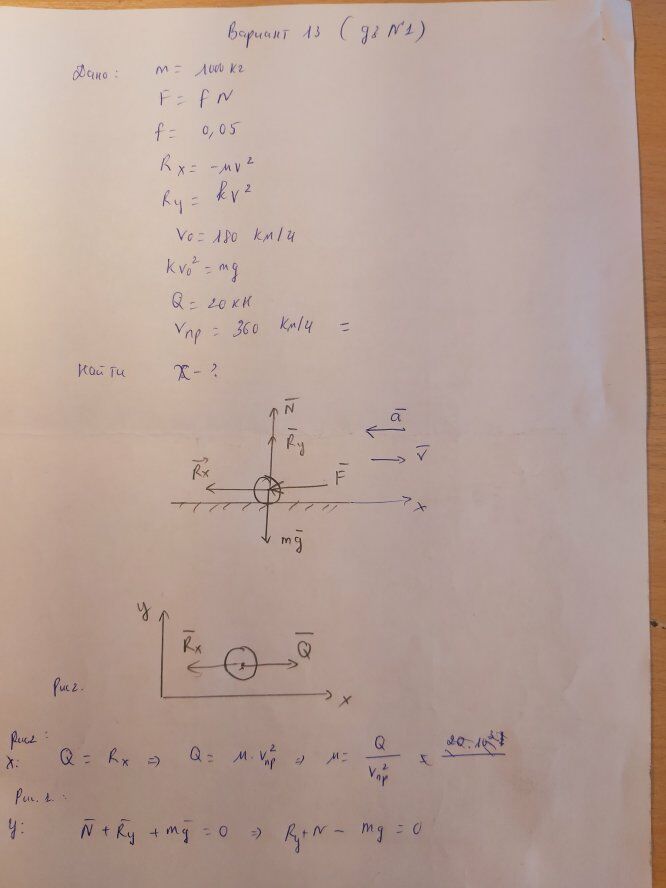 Вариант 13 (дз №1)
Дано: m = 1000 кг
F = f N
f = 0,05
Rx = -μv²
Ry = kv²
v₀ = 180 км/ч
kv₀² = mg
Q = 20 кН
vпр = 360 км/ч =
Найти X - ?
N̄
R̄y
ā
v̄
R⃗x
F̄
x
mḡ
y
R̄x
Q̄
x
Рис2.
Рис2:
x: Q = Rx ⇒ Q = μ · vпр² ⇒ μ = Q / vпр²
Рис. 1.:
y: N̄ + R̄y + mḡ = 0 ⇒ Ry + N - mg = 0